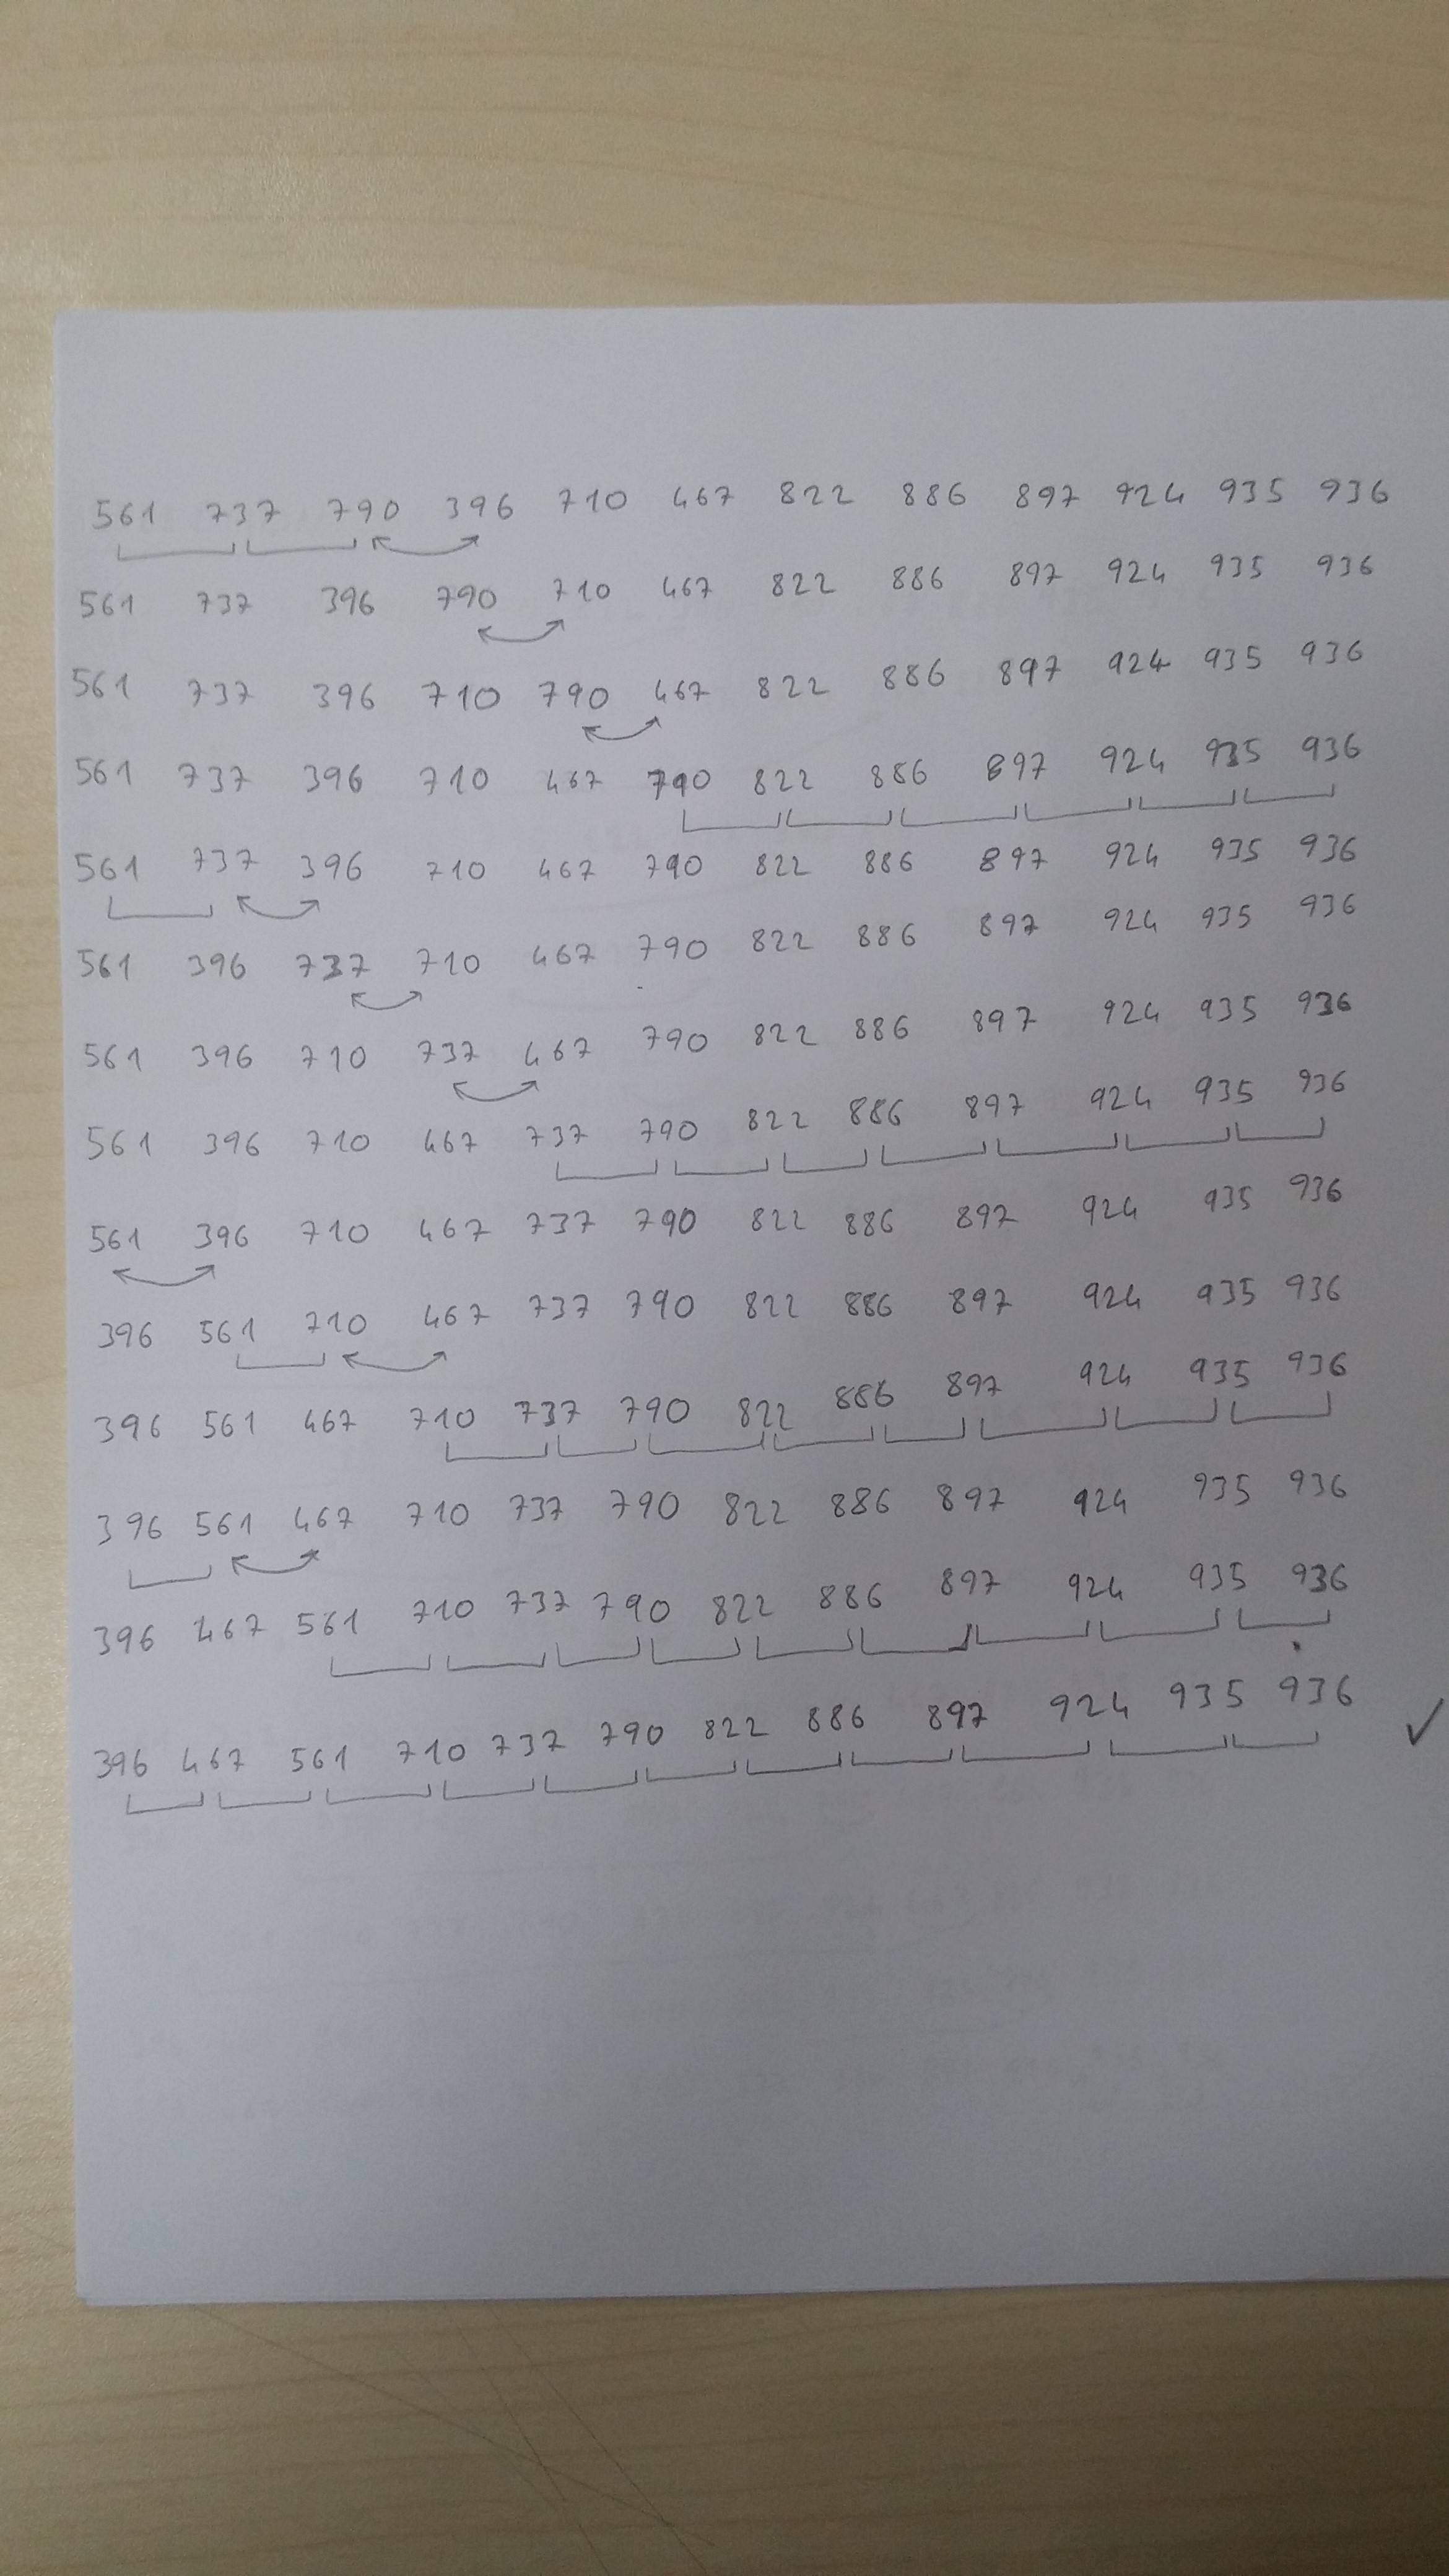 561 737 790 396 710 467 822 886 897 924 935 936
561 737 396 790 710 467 822 886 897 924 935 936
561 737 396 710 790 467 822 886 897 924 935 936
561 737 396 710 467 790 822 886 897 924 935 936
561 737 396 710 467 790 822 886 897 924 935 936
561 396 737 710 467 790 822 886 897 924 935 936
561 396 710 737 467 790 822 886 897 924 935 936
561 396 710 467 737 790 822 886 897 924 935 936
561 396 710 467 737 790 822 886 897 924 935 936
396 561 710 467 737 790 822 886 897 924 935 936
396 561 467 710 737 790 822 886 897 924 935 936
396 561 467 710 737 790 822 886 897 924 935 936
396 467 561 710 737 790 822 886 897 924 935 936
396 467 561 710 737 790 822 886 897 924 935 936 ✓